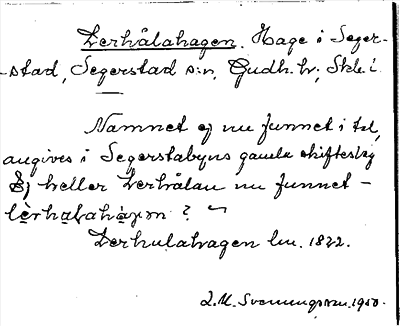 Lerhålahagen. Hage i Seger-
stad, Segerstad s:n, Gudh. hr; Skb. l.
Namnet ej nu funnet i tal,
angives i Segerstabyns gamla skifteslag
Ej heller Lerhålan nu funnet -
lèrhalahàgen ? ~
Lerhulahagen lm. 1822.
L.M. Svenungsson. 1950.